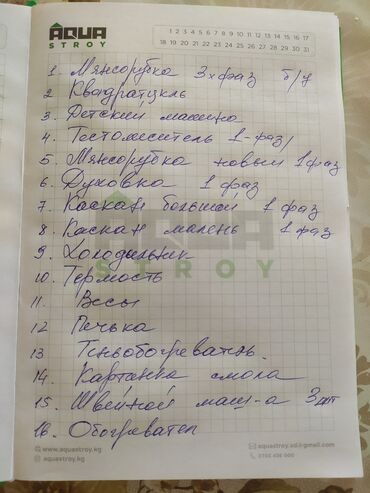 AQUA
STROY
1 2 3 4 5 6 7 8 9 10 11 12 13 14 15 16 17
18 19 20 21 22 23 24 25 26 27 28 29 30 31
1. Мянсорубка 3х фаз б/у
2 Квадратцкль
3. Детский машина
4. Тестомиситель 1-фаз/
5. Мянсорубка новый 1 фаз
6. Духовка 1 фаз
7 Каскан большой 1 фаз
8. Каскан малень 1 фаз
9. Холодильник
10. Термость
11. Весы
12 Печька
13 Тиньобогреватнь.
14. Картанка смола
15. Швейной маш-а 3шт
16. Обогревател
AQUA
STROY
www.aquastroy.kg
aquastroy.kg
aquastroy.ad@gmail.com